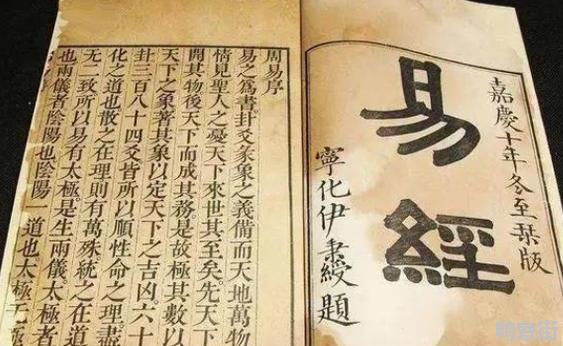 嘉慶十年冬至栞版
易經
寧化伊秉綬題
周易序
易之爲書卦爻彖象之義備而天地萬物
情見聖人之憂天下來世其至矣先天下
開其物後天下而成其務是故極其數以
天下之象著其象以定天下之吉凶六十
卦三百八十四爻皆所以順性命之理盡
化之道也散之在理則有萬殊統之在道
无二致所以易有太極是生兩儀太極者
也兩儀者陰陽也陰陽 道也太極无極